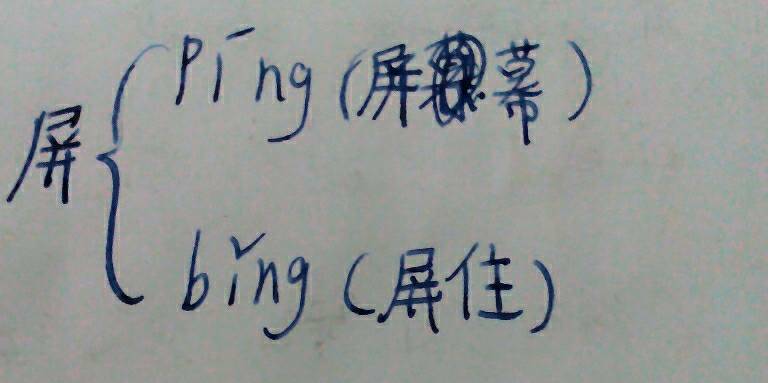 屏
píng (屏幕)
bǐng (屏住)